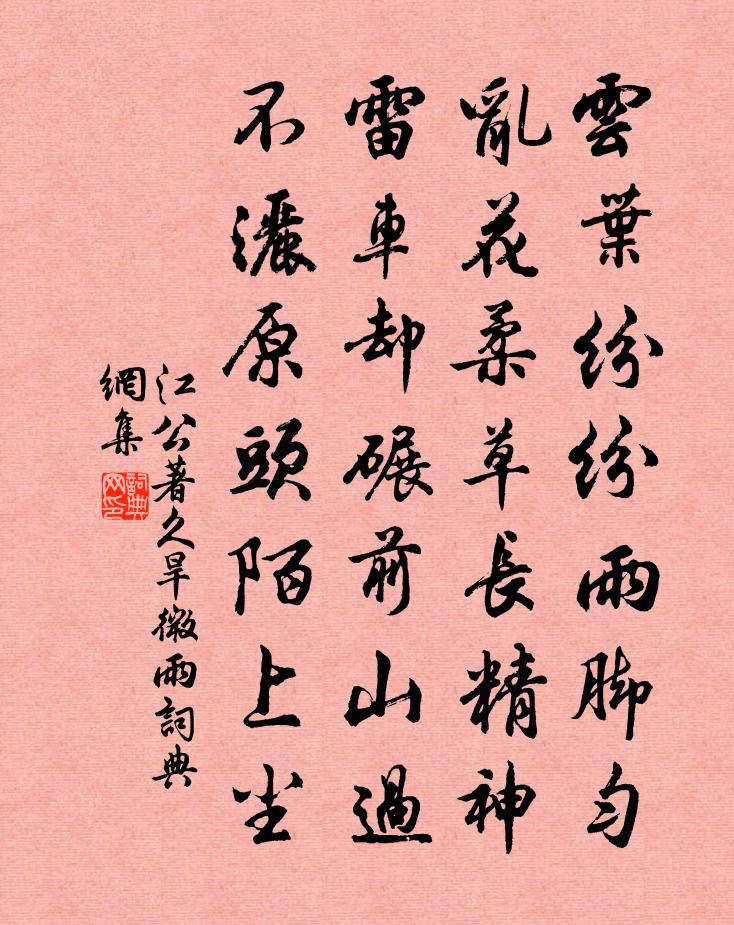 雲葉紛紛雨脚匀
亂花柔草長精神
雷車却碾前山過
不灑原頭陌上尘
江公著久旱微雨詞典
網集
詞典
网印